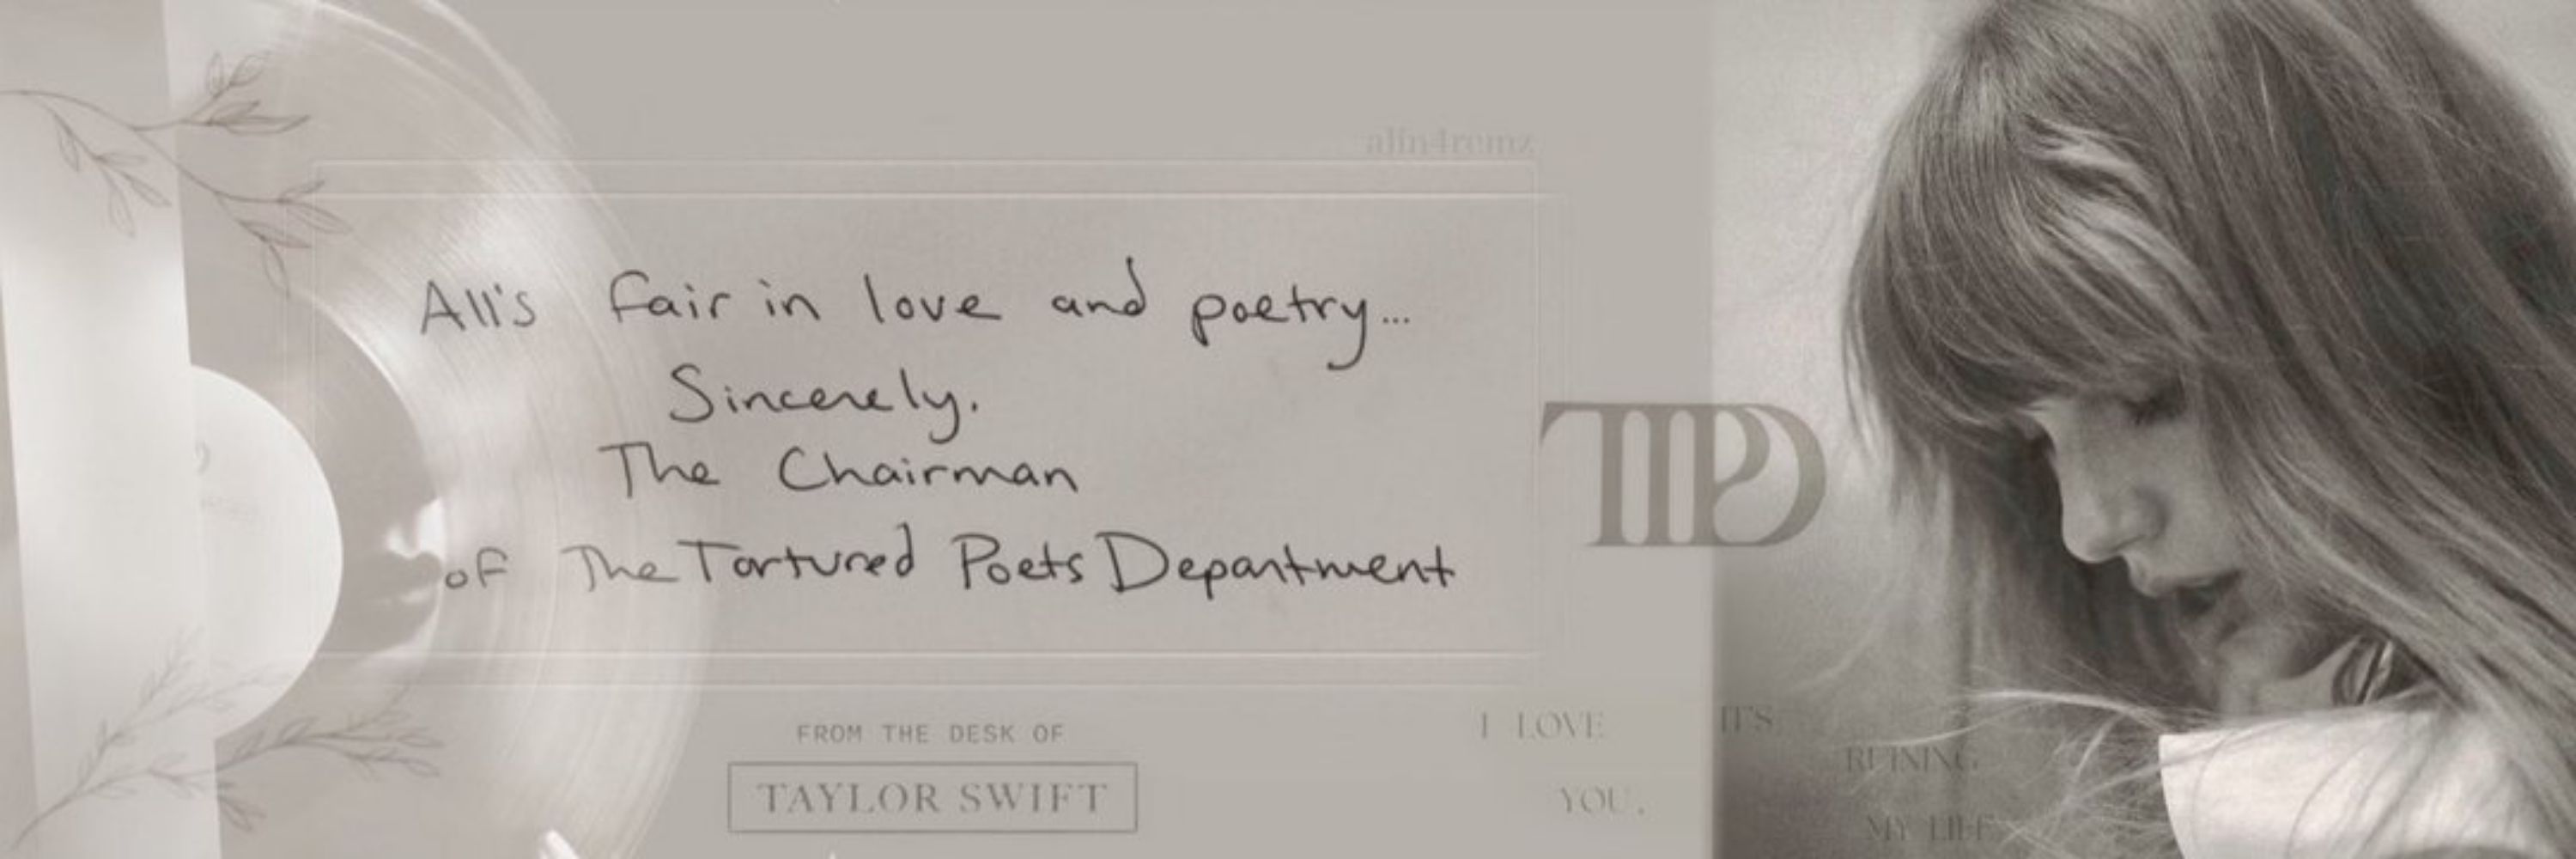 alin4remz
All's fair in love and poetry...
Sincerely.
The Chairman
of The Tortured Poets Department
TTPD
FROM THE DESK OF
TAYLOR SWIFT
I LOVE IT'S
RUINING
YOU.
MY LIFE